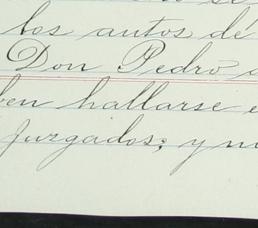 los autos dé
Don Pedro
ben hallarse e
juzgados; y no